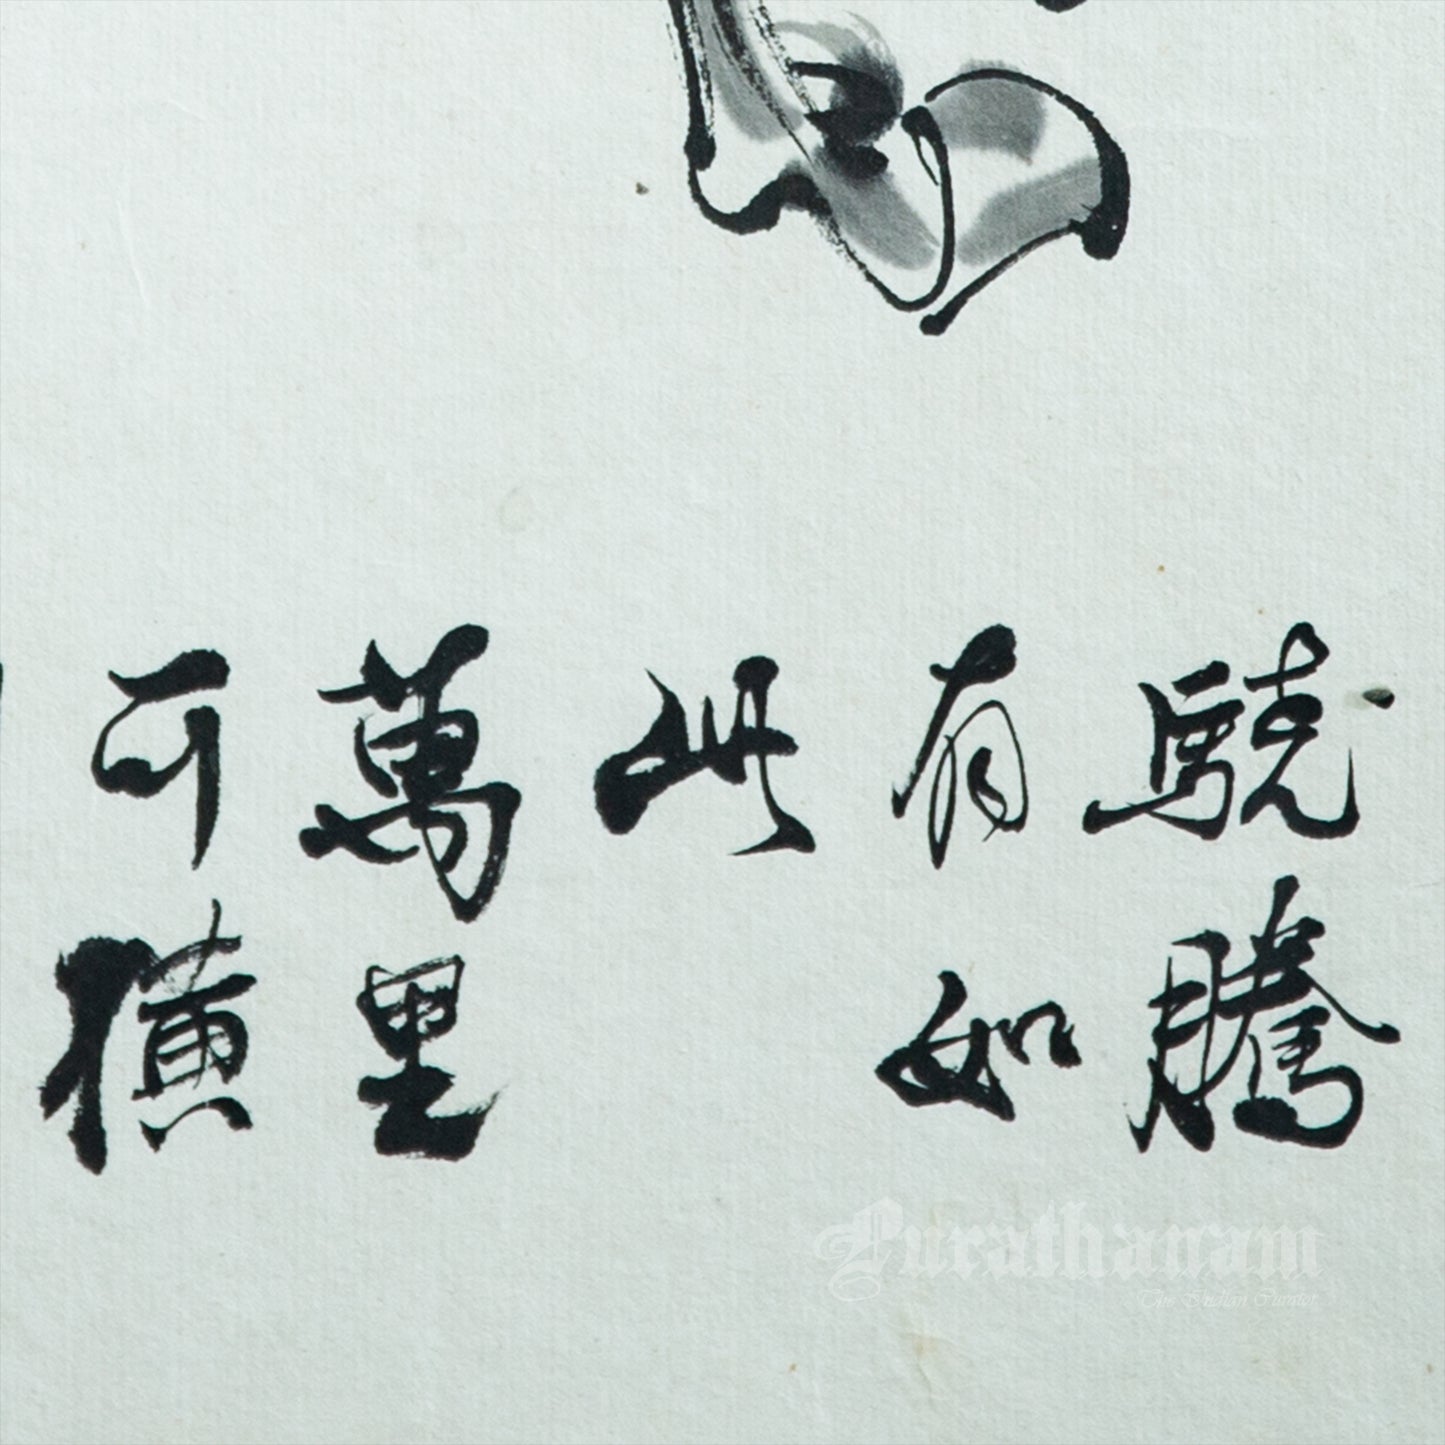 驍騰
有如
此
萬里
可橫
Purathanam
The Indian Curator